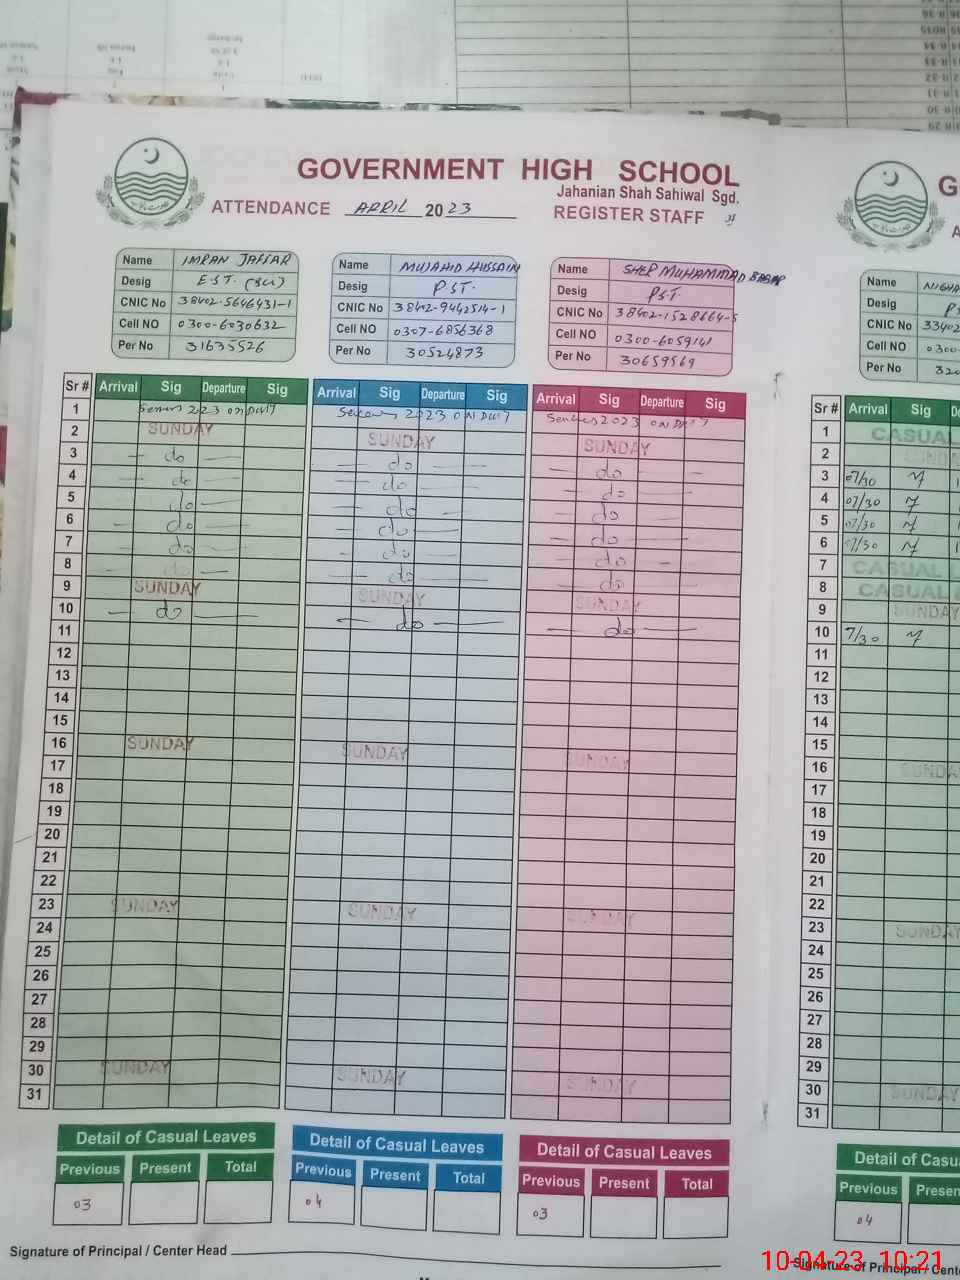 GOVERNMENT HIGH SCHOOL
Jahanian Shah Sahiwal Sgd.
ATTENDANCE APRIL 2023 REGISTER STAFF
Name IMRAN JAFFAR
Desig E.S.T. (Sci)
CNIC No 38402-5646431-1
Cell NO 0300-6030632
Per No 31635526
Name MUJAHID HUSSAIN
Desig P.S.T.
CNIC No 38402-9442514-1
Cell NO 0307-6856368
Per No 30524873
Name SHER MUHAMMAD BABAR
Desig P.S.T
CNIC No 38402-1528664-5
Cell NO 0300-6059141
Per No 30659569
Name
Desig
CNIC No 33402
Cell NO 0300-
Per No 320
Sr # Arrival Sig Departure Sig Arrival Sig Departure Sig Arrival Sig Departure Sig
1 2023 ON DUTY 2023 ON DUTY 2023 ON DUTY
2 SUNDAY SUNDAY SUNDAY
3 do do do
4 do do do
5 do do do
6 do do do
7 do do do
8 do do do
9 SUNDAY SUNDAY SUNDAY
10 do do do
11
12
13
14
15
16 SUNDAY SUNDAY SUNDAY
17
18
19
20
21
22
23 SUNDAY SUNDAY SUNDAY
24
25
26
27
28
29
30 SUNDAY SUNDAY SUNDAY
31
Sr # Arrival Sig
1 CASUAL
2 SUNDAY
3 07/30
4 07/30
5 07/30
6 07/30
7 CASUAL
8 CASUAL
9 SUNDAY
10 7/30
11
12
13
14
15
16 SUNDAY
17
18
19
20
21
22
23 SUNDAY
24
25
26
27
28
29
30 SUNDAY
31
Detail of Casual Leaves
Previous Present Total
03
Detail of Casual Leaves
Previous Present Total
04
Detail of Casual Leaves
Previous Present Total
03
Detail of Casu
Previous Presen
04
Signature of Principal / Center Head
Signature of Principal / Cente
10-04-23 10:21